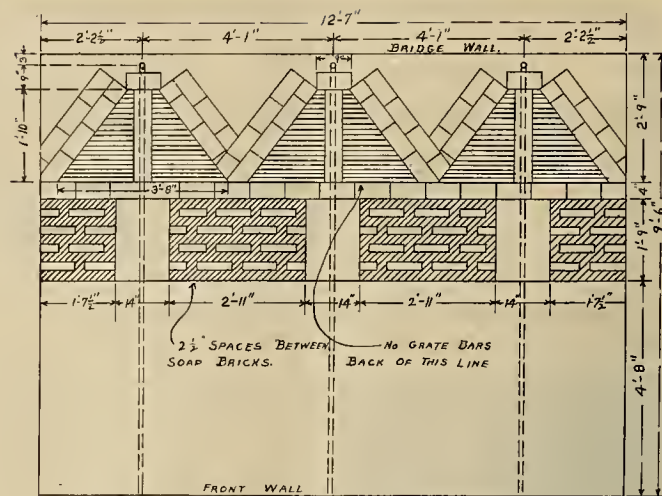 12'-7"
2'-2½" 4'-1" 4'-1" 2'-2½"
BRIDGE WALL.
3"
9"
9"
1'-10"
2'-9"
3'-8"
4"
9'-6"
1'-9"
1'-7½" 14" 2'-11" 14" 2'-11" 14" 1'-7½"
2½" SPACES BETWEEN
SOAP BRICKS.
NO GRATE BARS
BACK OF THIS LINE
4'-8"
FRONT WALL